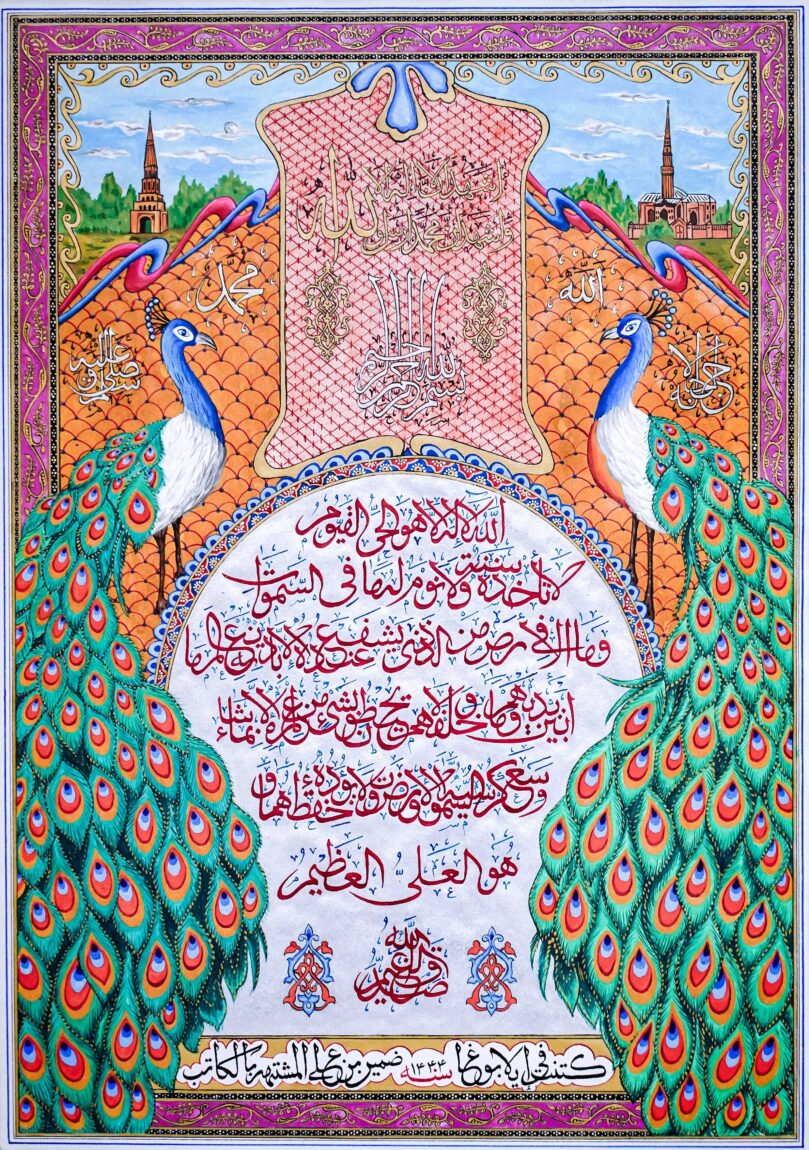 أشهد أن لا إله إلا الله
وأشهد أن محمدا رسول
الله
جل جلاله
محمد
صلى الله عليه وسلم
بسم الله الرحمن الرحيم
الله لا إله إلا هو الحي القيوم
لا تأخذه سنة ولا نوم له ما في السموات
وما في الأرض من ذا الذي يشفع عنده إلا بإذنه يعلم ما
بين أيديهم وما خلفهم ولا يحيطون بشيء من علمه إلا بما شاء
وسع كرسيه السموات والأرض ولا يؤده حفظهما و
هو العلي العظيم
صدق الله العظيم
في إيلابوغا سنه ضمير بن علي المشتهر بالكاتب